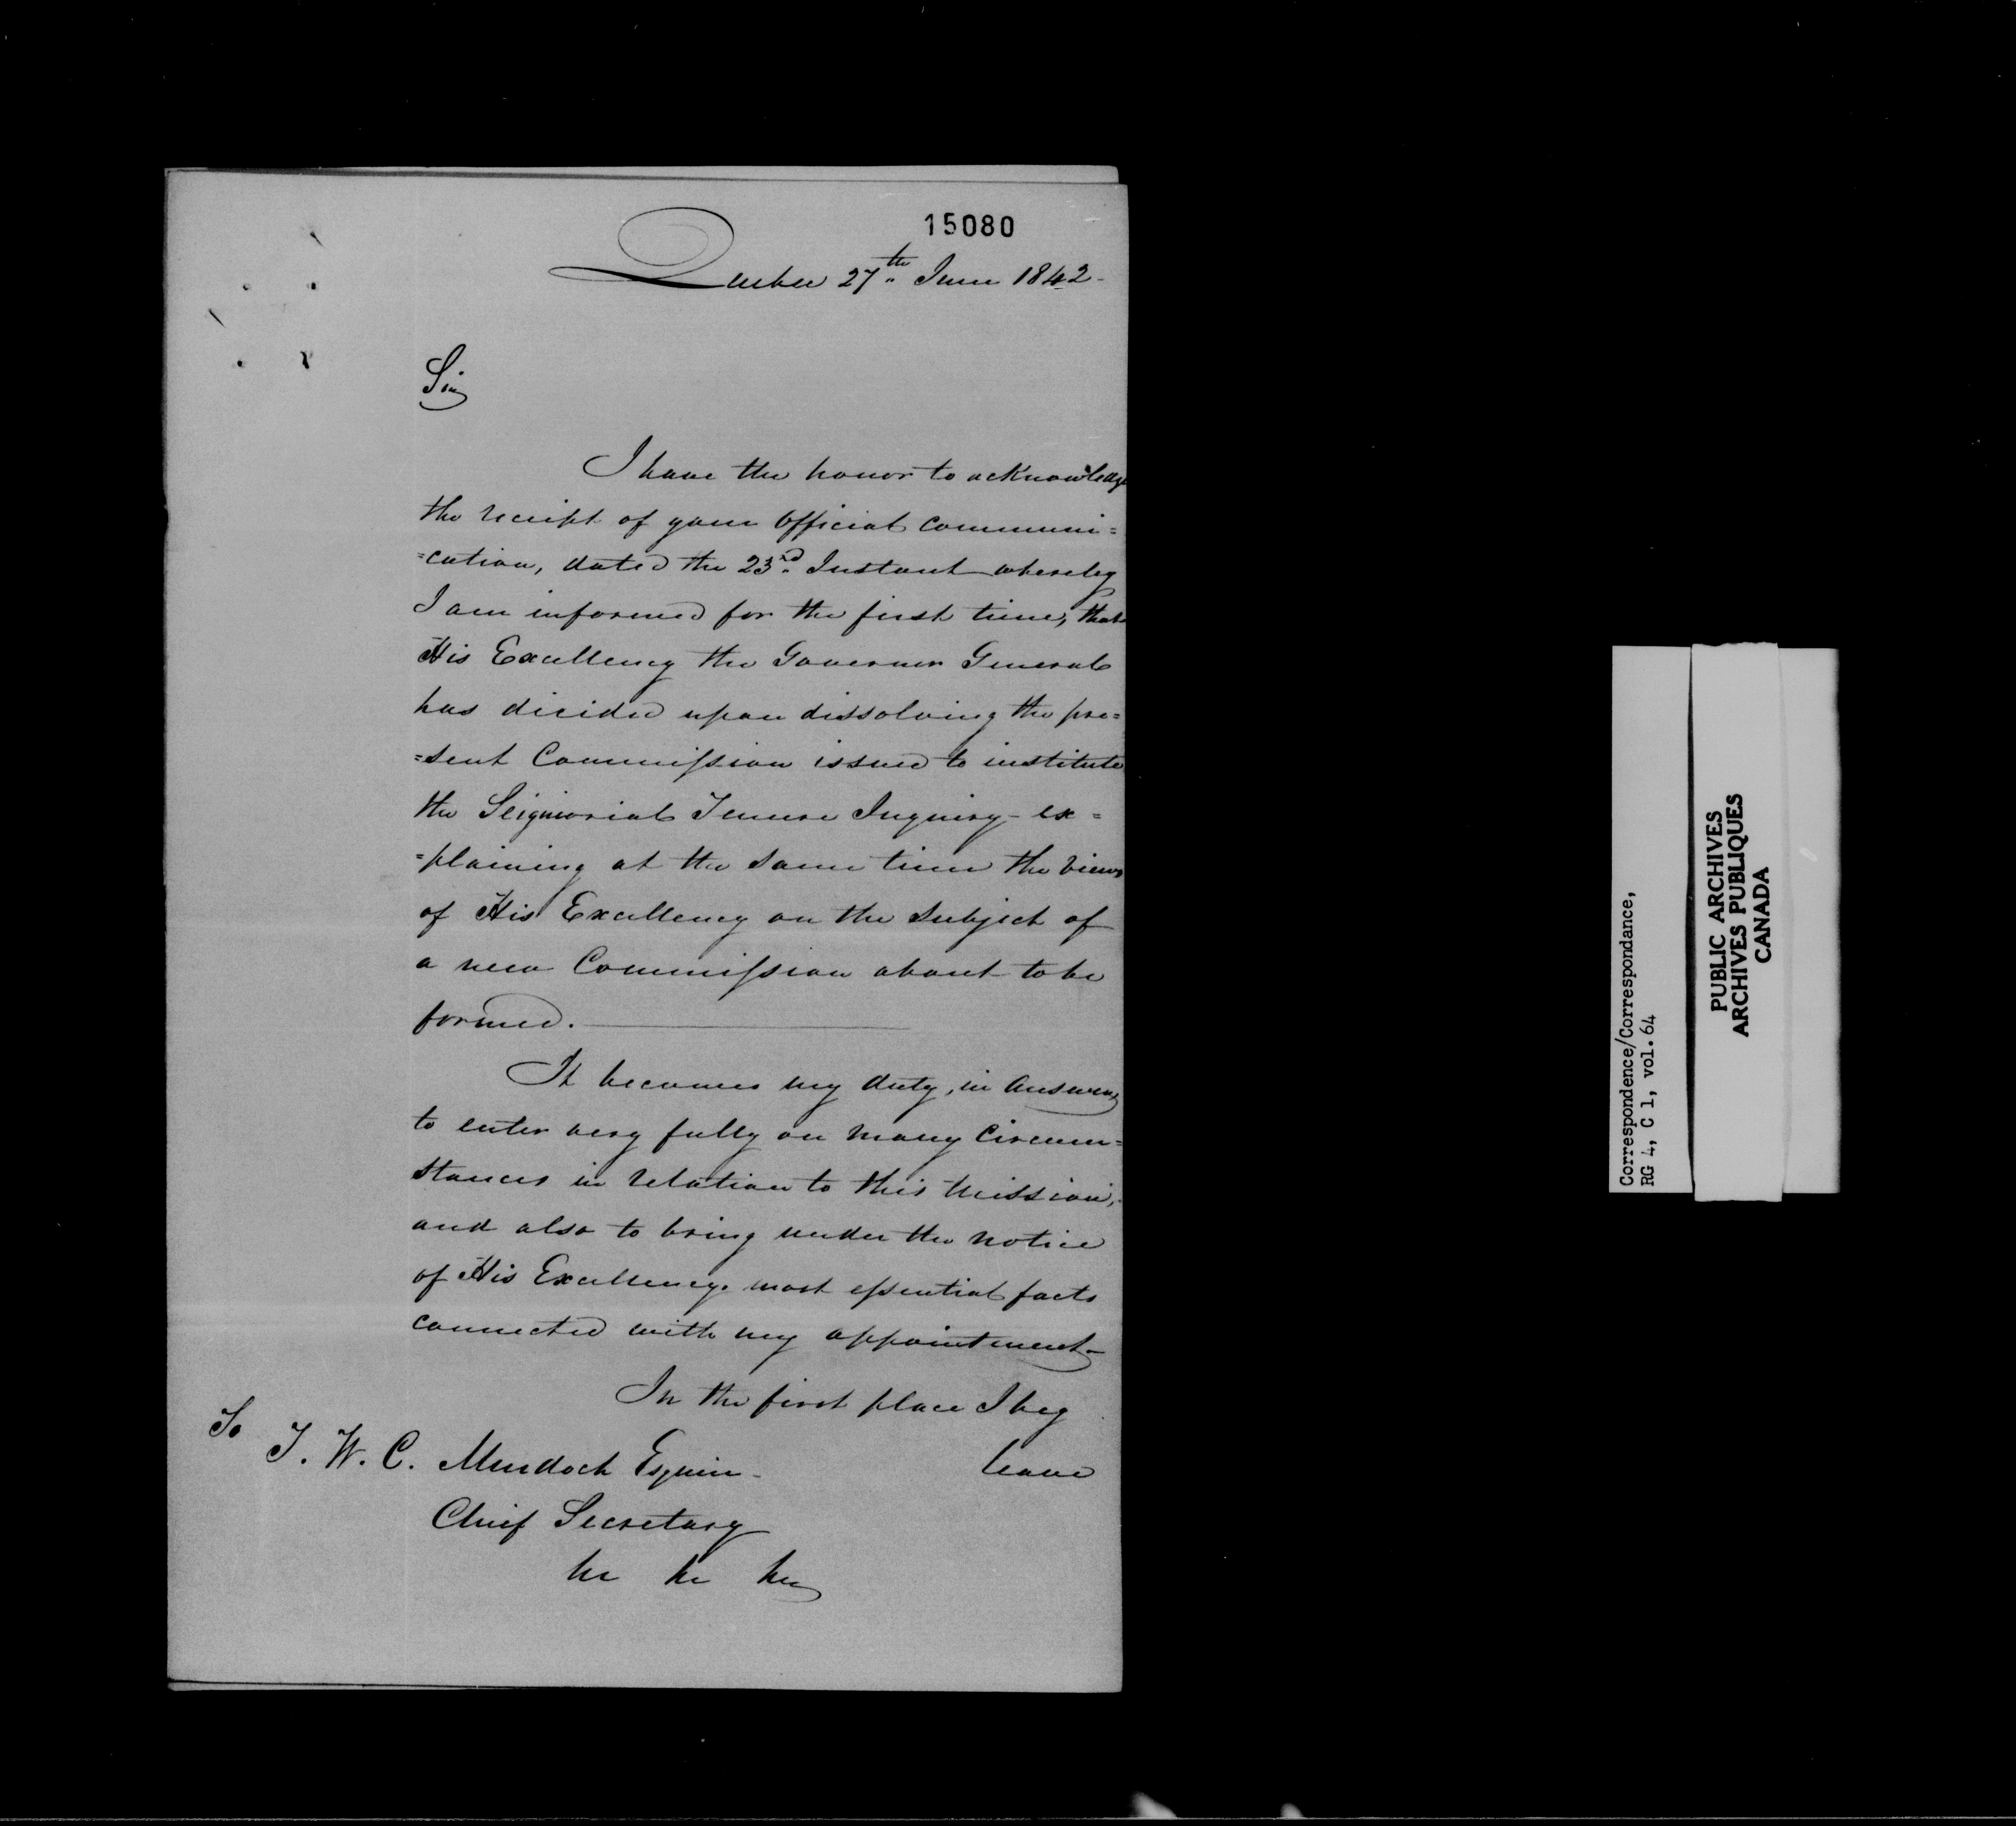 15080
Quebec 27th June 1842-
Sir,
I have the honor to acknowledge
the receipt of your Official communi=
=cation, dated the 23rd Instant whereby
I am informed for the first time, that
His Excellency the Governor General
has decided upon dissolving the pre=
=sent Commission issued to institute
the Seigniorial Tenure Inquiry - ex=
=plaining at the same time the views
of His Excellency on the subject of
a new Commission about to be
formed.
It becomes my duty, in Answer,
to enter very fully on many Circum=
stances in relation to this Mission,
and also to bring under the notice
of His Excellency most essential facts
connected with my appointment-
In the first place I beg
leave
To
T. W. C. Murdoch Esquire-
Chief Secretary
&c &c &c
Correspondence/Correspondance,
RG 4, C 1, vol. 64
PUBLIC ARCHIVES
ARCHIVES PUBLIQUES
CANADA